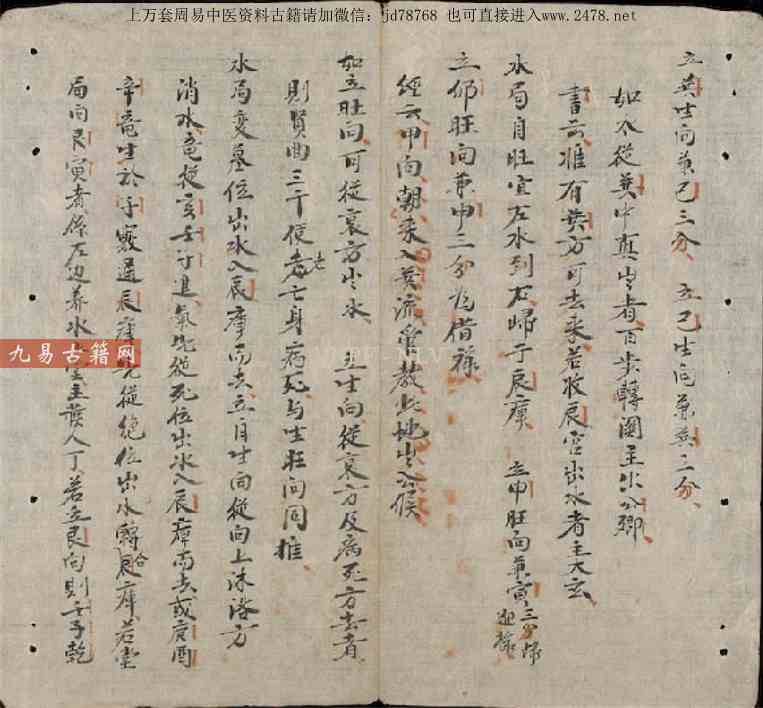 上万套周易中医资料古籍请加微信：jd78768 也可直接进入www.2478.net
立巽生向兼巳三分、 立巳生向兼巽三分、
如水從巽中真出者百步轉闌主出公卿、
書云惟有巽方可去來若收辰宮出水者主大玄、
水局自旺宜左水到右歸于辰庫、 立申旺向兼寅三分
立旺向兼申三分為借祿、
經云甲向朝來入巽流管教此地出公侯
如立旺向可從衰方出水、 立生向從衰方及病死方去者、
則賢曲三干便老亡身病死与生旺向同推、
水局变墓位出水入辰庫而去、立自生向從向上沐浴方
消水竜從亥壬進氣從死位出水入辰庫而去或庚酉
辛竜生於子竅通辰庫從絶位出水轉合辰庫若堂
局向艮寅者、係左边养水堂主發人丁若立艮向則壬子乾
九易古籍网